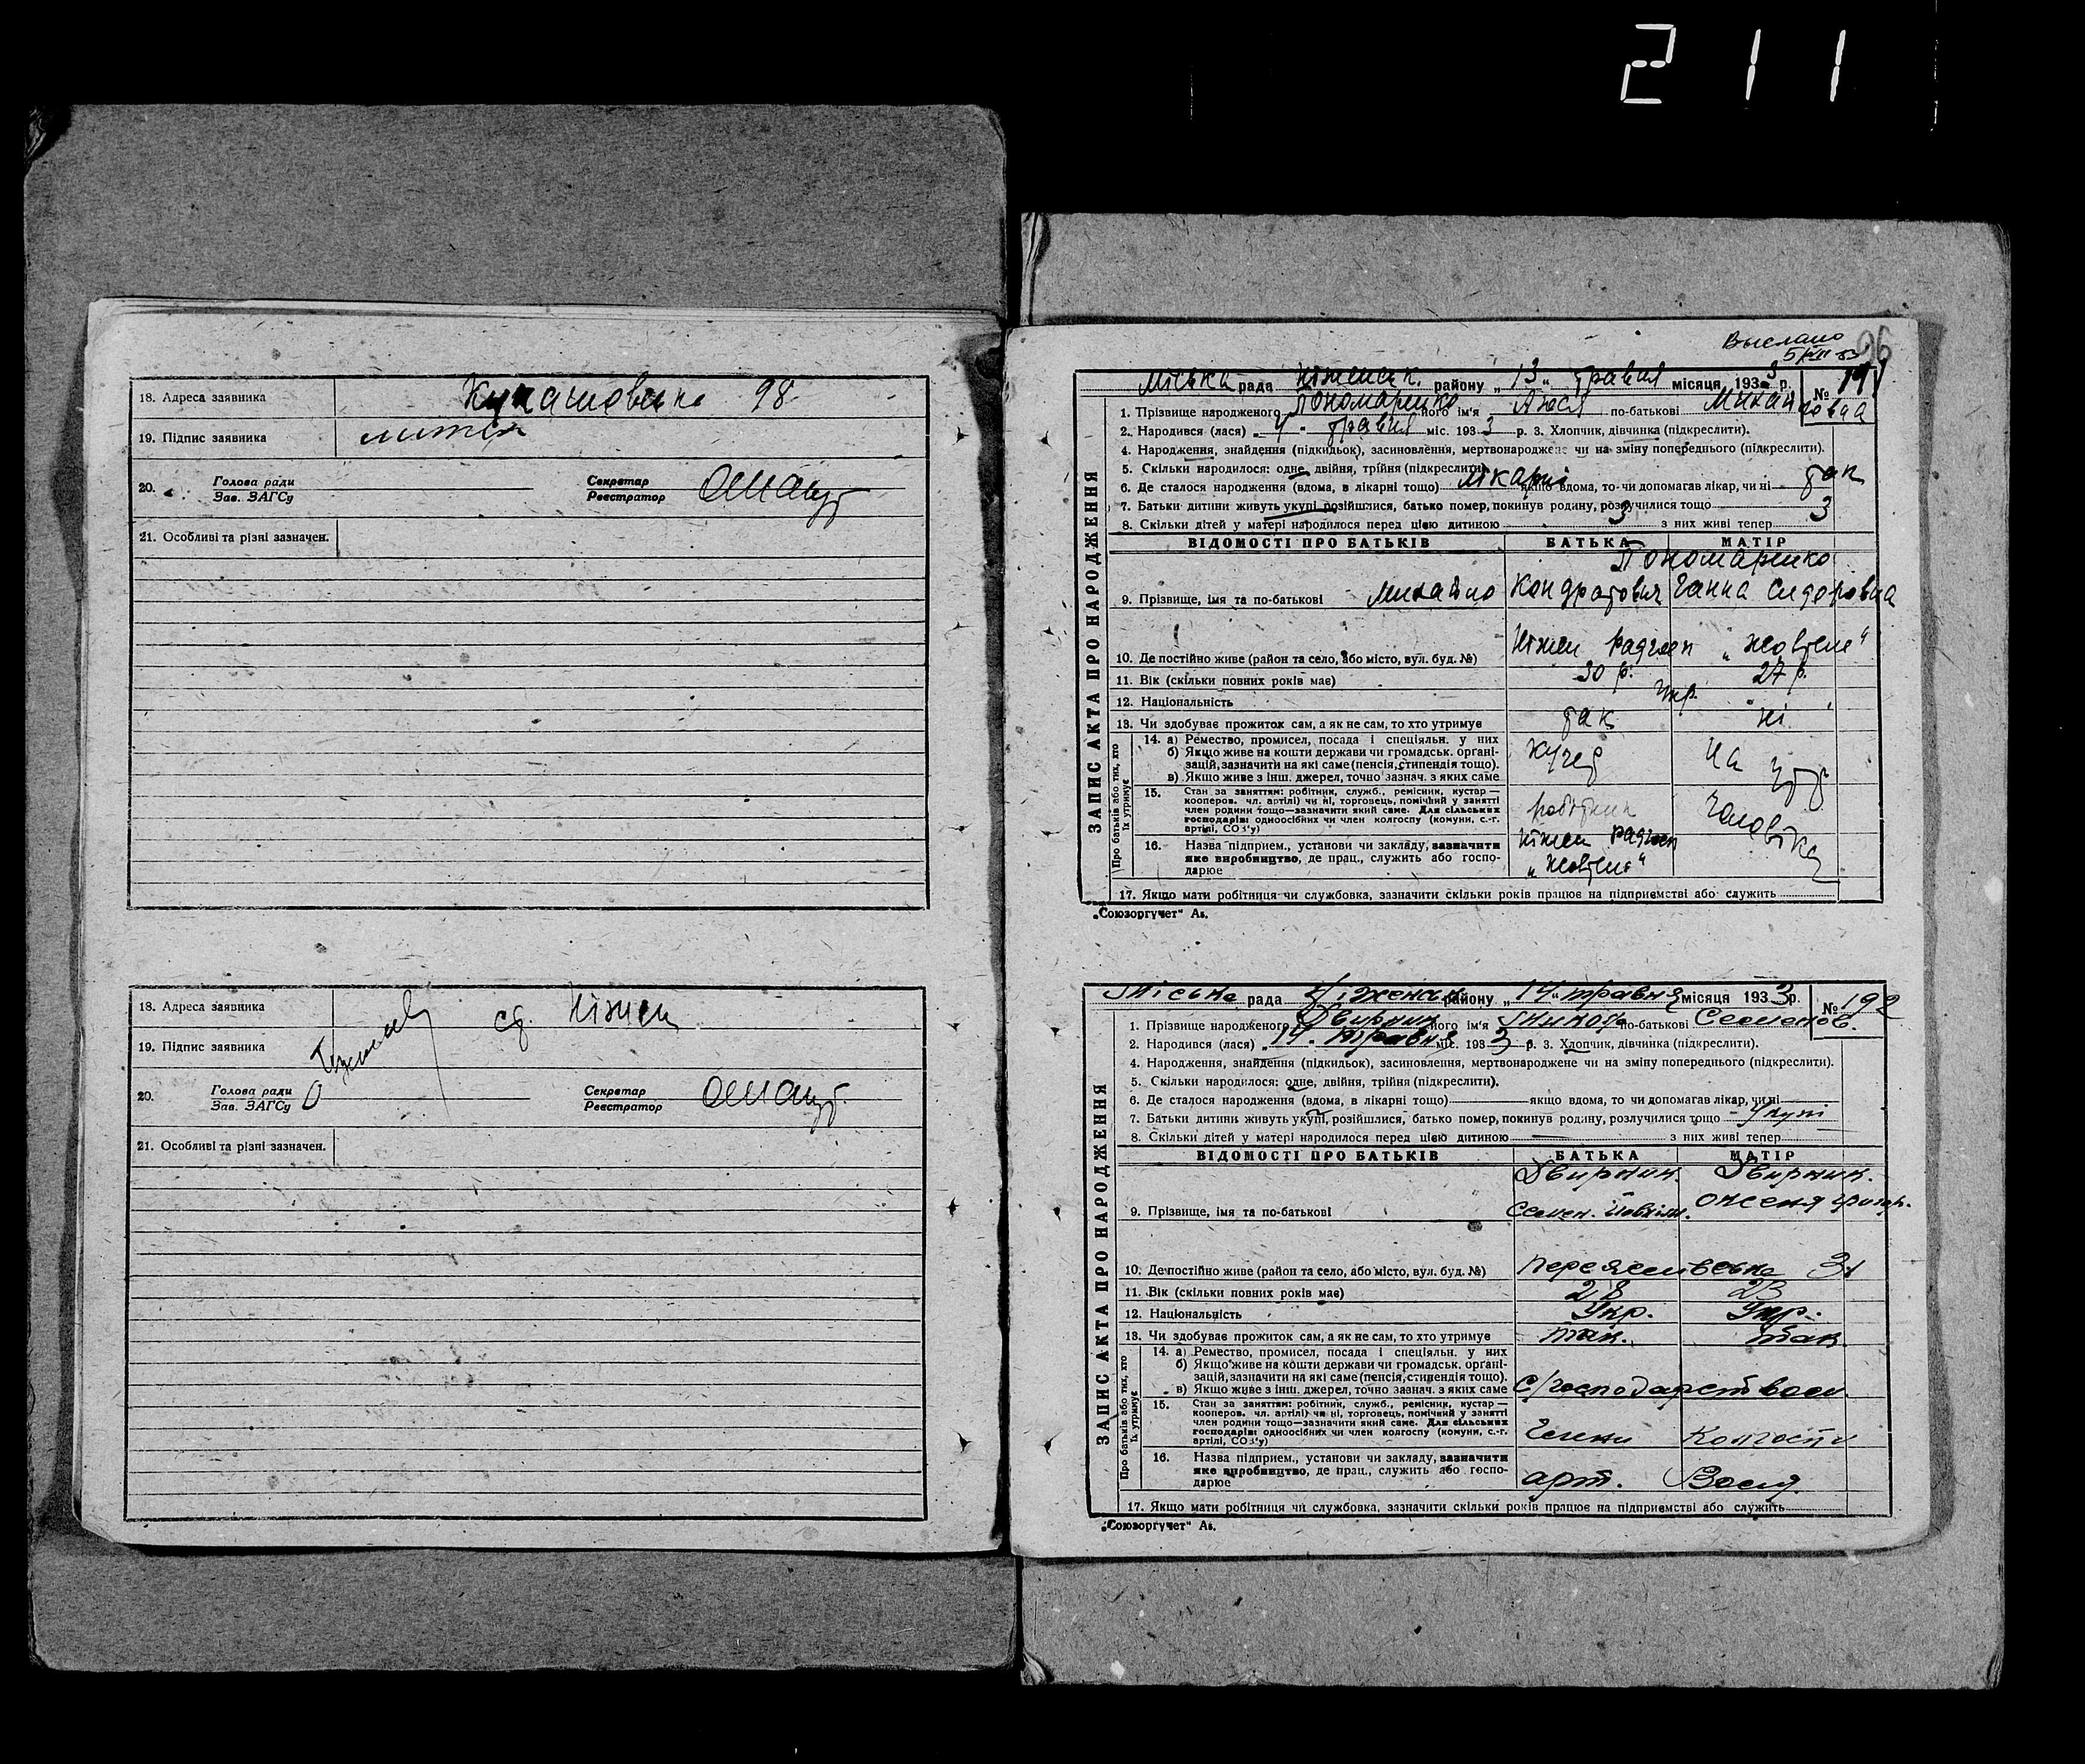 211
18. Адреса заявника Кунашовська 98
19. Підпис заявника
20. Голова ради
Зав. ЗАГСу
Секретар
Реєстратор
21. Особливі та різні зазначен.
18. Адреса заявника ст. Ніжен
19. Підпис заявника
20. Голова ради
Зав. ЗАГСу
Секретар
Реєстратор
21. Особливі та різні зазначен.
Выслано
96
ЗАПИС АКТА ПРО НАРОДЖЕННЯ
Міська рада Ніженськ. району „13" травня місяця 1933 р. № 191
1. Прізвище народженого Пономаренко його ім'я Леся по-батькові Михайловна
2. Народився (лася) „4" травня міс. 1933 р. 3. Хлопчик, дівчинка (підкреслити).
4. Народження, знайдення (підкидьок), засиновлення, мертвонароджене чи на зміну попереднього (підкреслити).
5. Скільки народилося: одне, двійня, трійня (підкреслити)
6. Де сталося народження (вдома, в лікарні тощо) лікарні якщо вдома, то чи допомагав лікар, чи ні так
7. Батьки дитини живуть укупі, розійшлися, батько помер, покинув родину, розлучилися тощо
8. Скільки дітей у матері народилося перед цією дитиною 3 з них живі тепер 3
ВІДОМОСТІ ПРО БАТЬКІВ БАТЬКА МАТІР
Пономаренко
9. Прізвище, імя та по-батькові Михайло Кондратович Ганна Сидоровна
10. Де постійно живе (район та село, або місто, вул. буд. №) Ніжен Радгосп „Жовтень"
11. Вік (скільки повних років має) 30 р. 27 р.
12. Національність Укр. "
13. Чи здобуває прожиток сам, а як не сам, то хто утримує так ні
Про батьків або тих, хто їх утримує
14. а) Ремество, промисел, посада і спеціяльн. у них
б) Якщо живе на кошти держави чи громадськ. органі-
зацій, зазначити на які саме (пенсія, стипендія тощо).
в) Якщо живе з інш. джерел, точно зазнач. з яких саме
Кучер На утр
15. Стан за заняттям: робітник, служб., ремісник, кустар —
кооперов. чл. артілі) чи ні, торговець, помічний у занятті
член родини тощо—зазначити який саме. Для сільських
господарів: одноосібник чи член колгоспу (комуни, с.-г.
артілі, СОЗ'у)
робітник Чоловіка
16. Назва підприєм., установи чи закладу, зазначити
яке виробництво, де прац., служить або госпо-
дарює
Ніжен Радгосп
„Жовтень"
17. Якщо мати робітниця чи службовка, зазначити скільки років працює на підприємстві або служить
„Союзоргучет" Ав.
ЗАПИС АКТА ПРО НАРОДЖЕННЯ
Міська рада Ніженськ району „14" травня місяця 1933 р. № 192
1. Прізвище народженого Двирник його ім'я Микола по-батькові Семенов.
2. Народився (лася) „14" травня міс. 1933 р. 3. Хлопчик, дівчинка (підкреслити).
4. Народження, знайдення (підкидьок), засиновлення, мертвонароджене чи на зміну попереднього (підкреслити).
5. Скільки народилося: одне, двійня, трійня (підкреслити).
6. Де сталося народження (вдома, в лікарні тощо) якщо вдома, то чи допомагав лікар, чи ні
7. Батьки дитини живуть укупі, розійшлися, батько помер, покинув родину, розлучилися тощо Укупі
8. Скільки дітей у матері народилося перед цією дитиною з них живі тепер
ВІДОМОСТІ ПРО БАТЬКІВ БАТЬКА МАТІР
Двирник. Двирник.
9. Прізвище, імя та по-батькові Семен.
10. Де постійно живе (район та село, або місто, вул. буд. №)
11. Вік (скільки повних років має) 28 23
12. Національність Укр. Укр.
13. Чи здобуває прожиток сам, а як не сам, то хто утримує так. так
Про батьків або тих, хто їх утримує
14. а) Ремество, промисел, посада і спеціяльн. у них
б) Якщо живе на кошти держави чи громадськ. органі-
зацій, зазначити на які саме (пенсія, стипендія тощо).
в) Якщо живе з інш. джерел, точно зазнач. з яких саме
С/господарством.
15. Стан за заняттям: робітник, служб., ремісник, кустар —
кооперов. чл. артілі) чи ні, торговець, помічний у занятті
член родини тощо—зазначити який саме. Для сільських
господарів: одноосібник чи член колгоспу (комуни, с.-г.
артілі, СОЗ'у)
Члени Колгоспу
16. Назва підприєм., установи чи закладу, зазначити
яке виробництво, де прац., служить або госпо-
дарює
арт.
17. Якщо мати робітниця чи службовка, зазначити скільки років працює на підприємстві або служить
„Союзоргучет" Ав.